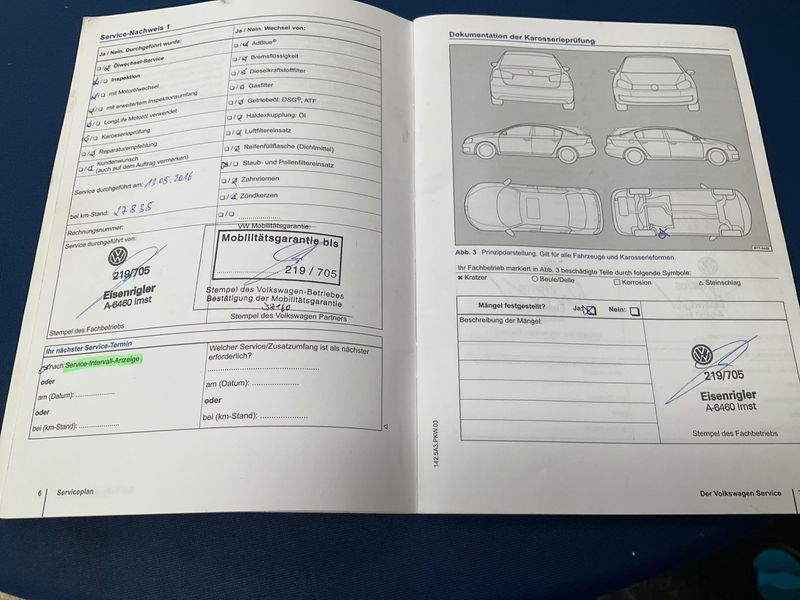 Service-Nachweis 1
Ja / Nein. Durchgeführt wurde:
Ölwechsel-Service
Inspektion
mit Motorölwechsel
mit erweitertem Inspektionsumfang
LongLife Motoröl verwendet
Karosserieprüfung
Reparaturempfehlung
Kundenwunsch
(auch auf dem Auftrag vermerken)
Service durchgeführt am: 19.05.2016
bei km-Stand: 27835
Rechnungsnummer:
Service durchgeführt von:
219/705
Eisenrigler
A-6460 Imst
Stempel des Fachbetriebs
Ja / Nein. Wechsel von:
AdBlue®
Bremsflüssigkeit
Dieselkraftstofffilter
Gasfilter
Getriebeöl: DSG®, ATF
Haldexkupplung: Öl
Luftfiltereinsatz
Reifenfüllflasche (Dichtmittel)
Staub- und Pollenfiltereinsatz
Zahnriemen
Zündkerzen
VW Mobilitätsgarantie:
Mobilitätsgarantie bis
219 / 705
Stempel des Volkswagen-Betriebes
Bestätigung der Mobilitätsgarantie
Stempel des Volkswagen Partners
Ihr nächster Service-Termin
nach Service-Intervall-Anzeige
oder
am (Datum): ................
oder
bei (km-Stand): ................
Welcher Service/Zusatzumfang ist als nächster
erforderlich?
am (Datum): ................
oder
bei (km-Stand): ................
6 Serviceplan
Dokumentation der Karosserieprüfung
Abb. 3 Prinzipdarstellung. Gilt für alle Fahrzeuge und Karosserieformen.
Ihr Fachbetrieb markiert in Abb. 3 beschädigte Teile durch folgende Symbole:
× Kratzer ○ Beule/Delle □ Korrosion △ Steinschlag
Mängel festgestellt? Ja: Nein:
Beschreibung der Mängel:
219/705
Eisenrigler
A-6460 Imst
Stempel des Fachbetriebs
142.5A3.PKW.03
Der Volkswagen Service